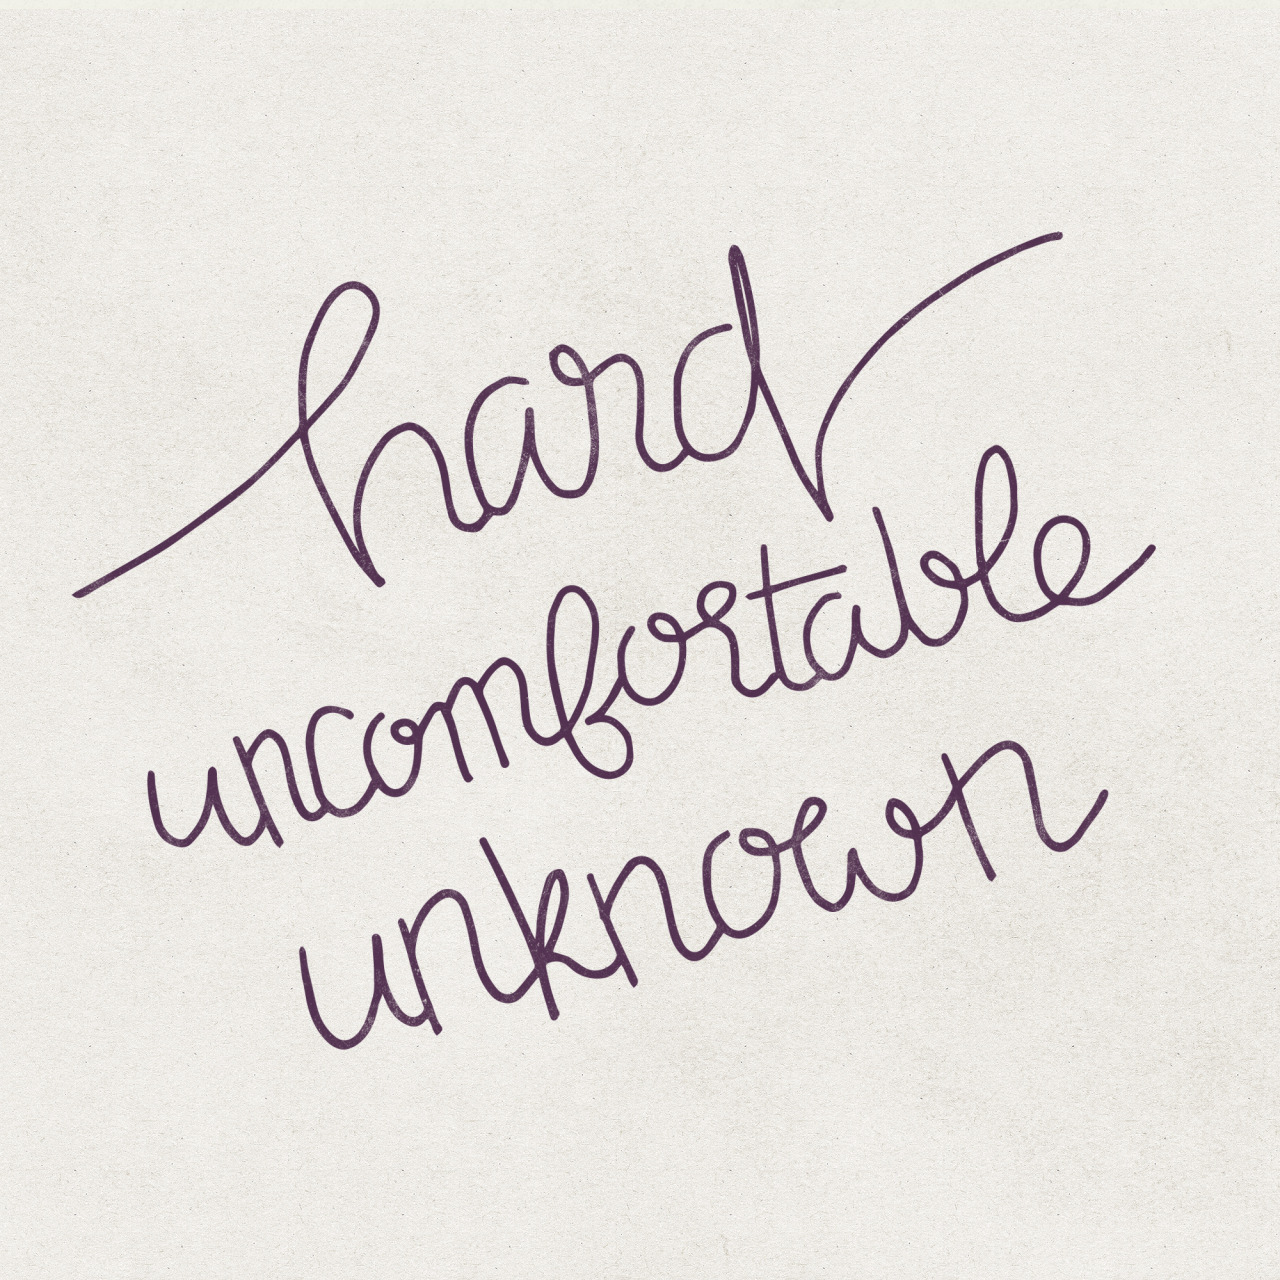 hard
uncomfortable
unknown